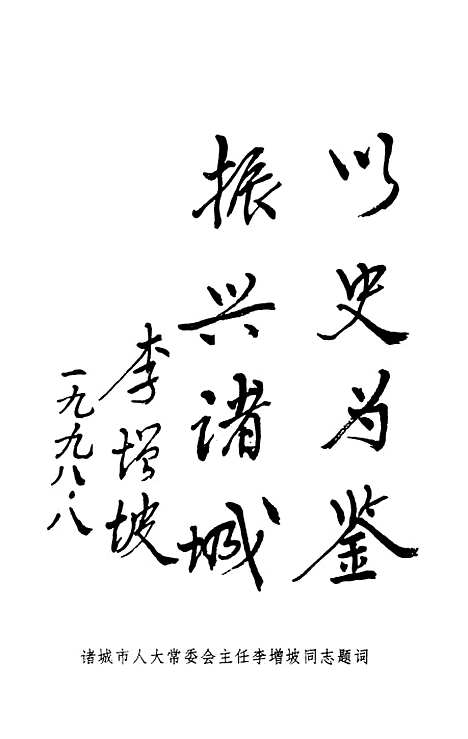 以史为鉴
振兴诸城
李增坡
一九九八.八
诸城市人大常委会主任李增坡同志题词